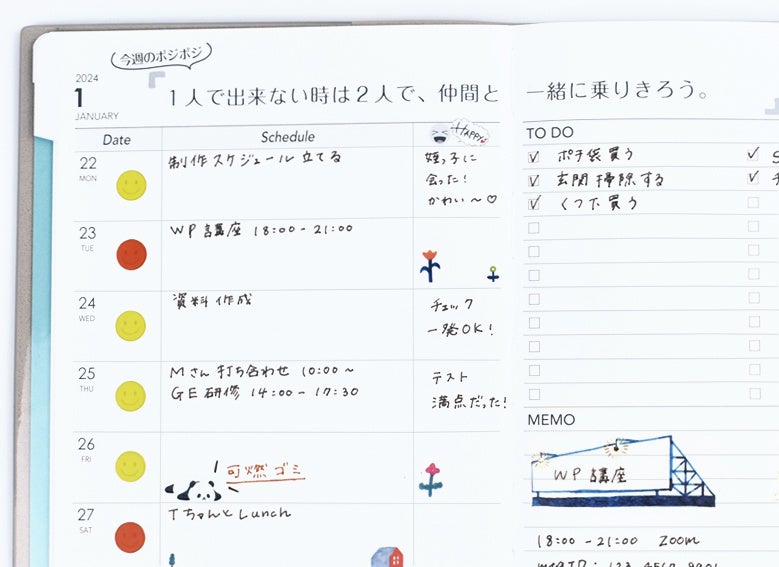 今週のポジポジ
2024
1
JANUARY
1人で出来ない時は2人で、仲間と一緒に乗りきろう。
Date Schedule Happy
22 MON 制作スケジュール立てる 姪っ子に
会った!
かわい〜♡
23 TUE WP講座 18:00-21:00
24 WED 資料作成 チェック
一発OK!
25 THU Mさん打ち合わせ 10:00〜 テスト
GE研修 14:00-17:30 満点だった!
26 FRI 可燃ゴミ
27 SAT TちゃんとLunch
TO DO
ポチ袋買う
玄関掃除する
くつ下買う
MEMO
WP講座
18:00-21:00 ZOOM